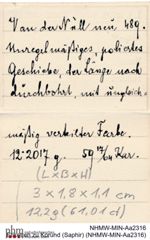 Van der Nüll neu 489.
Unregelmäßiges, poliertes
Geschiebe, der Länge nach
durchbohrt, mit ungleich-
mäßig verteilter Farbe.
12·2017 g. 59 Kar.
(L×B×H)
3 × 1.8 × 1.1 cm
12.2 g (61.01 ct)
NHMW-MIN-Aa2316
phm
Etiketten zu Korund (Saphir) (NHMW-MIN-Aa2316)